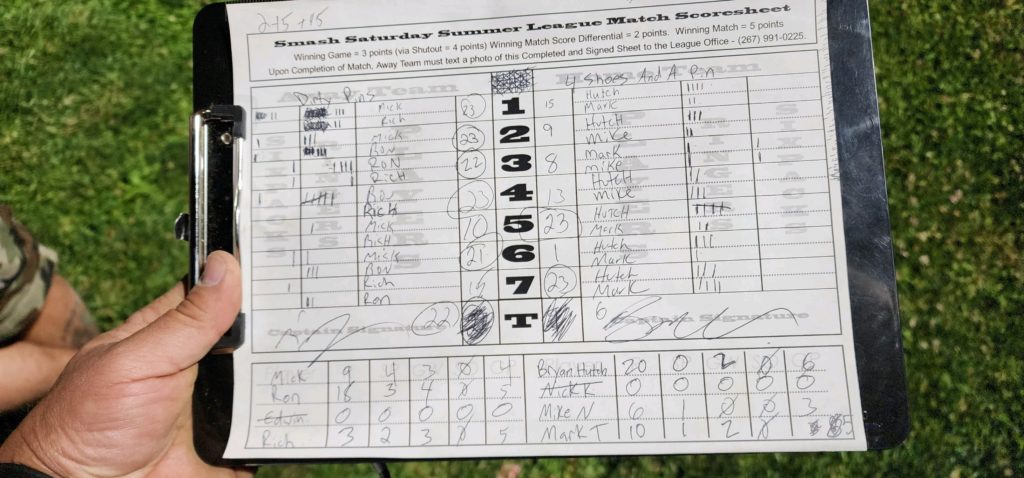 2+5+15
Smash Saturday Summer League Match Scoresheet
Winning Game = 3 points (via Shutout = 4 points) Winning Match Score Differential = 2 points. Winning Match = 5 points
Upon Completion of Match, Away Team must text a photo of this Completed and Signed Sheet to the League Office - (267) 991-0225.
Away Team Dirty Pins 4 Shoes And A Pin Team
Mick 23 1 15 Hutch
Rich Mark
Mick 23 2 9 Hutch
Ron Mike
Ron 22 3 8 Mark
Rich Mike
Ron 23 4 13 Hutch
Rich Mike
Mick 10 5 23 Hutch
Rich Mark
Mick 21 6 1 Hutch
Ron Mark
Rich 7 23 Hutch
Ron Mark
Captain Signature 22 T 6 Captain Signature
Mick 9 4 3 0 4 Bryan Hutch 20 0 2 0 6
Ron 18 3 4 0 5 Nick K 0 0 0 0 0
Edwin 0 0 0 0 0 Mike N 6 1 0 0 3
Rich 3 2 3 0 5 Mark T 10 1 2 0 5